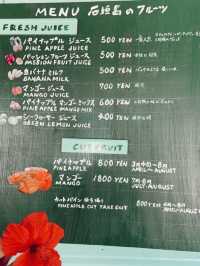 MENU 石垣島のフルーツ
FRESH JUICE
パイナップル ジュース 500 YEN
PINE APPLE JUICE
パッションフルーツ ジュース 500 YEN
PASSION FRUIT JUICE
島バナナ ミルク 500 YEN
BANANA MILK
マンゴー ジュース 700 YEN
MANGO JUICE
パイナップル マンゴー ミックス 600 YEN
PINE APPLE MANGO MIX
シークヮーサー ジュース 400 YEN
LEMON JUICE
CUT FRUIT
パイナップル 800 YEN
PINE APPLE APRIL〜AUGUST
マンゴー 1800 YEN 7月 8月
MANGO JULY・AUGUST
カットパイン 持ち帰り 800 YEN
PINE APPLE CUT TAKE OUT